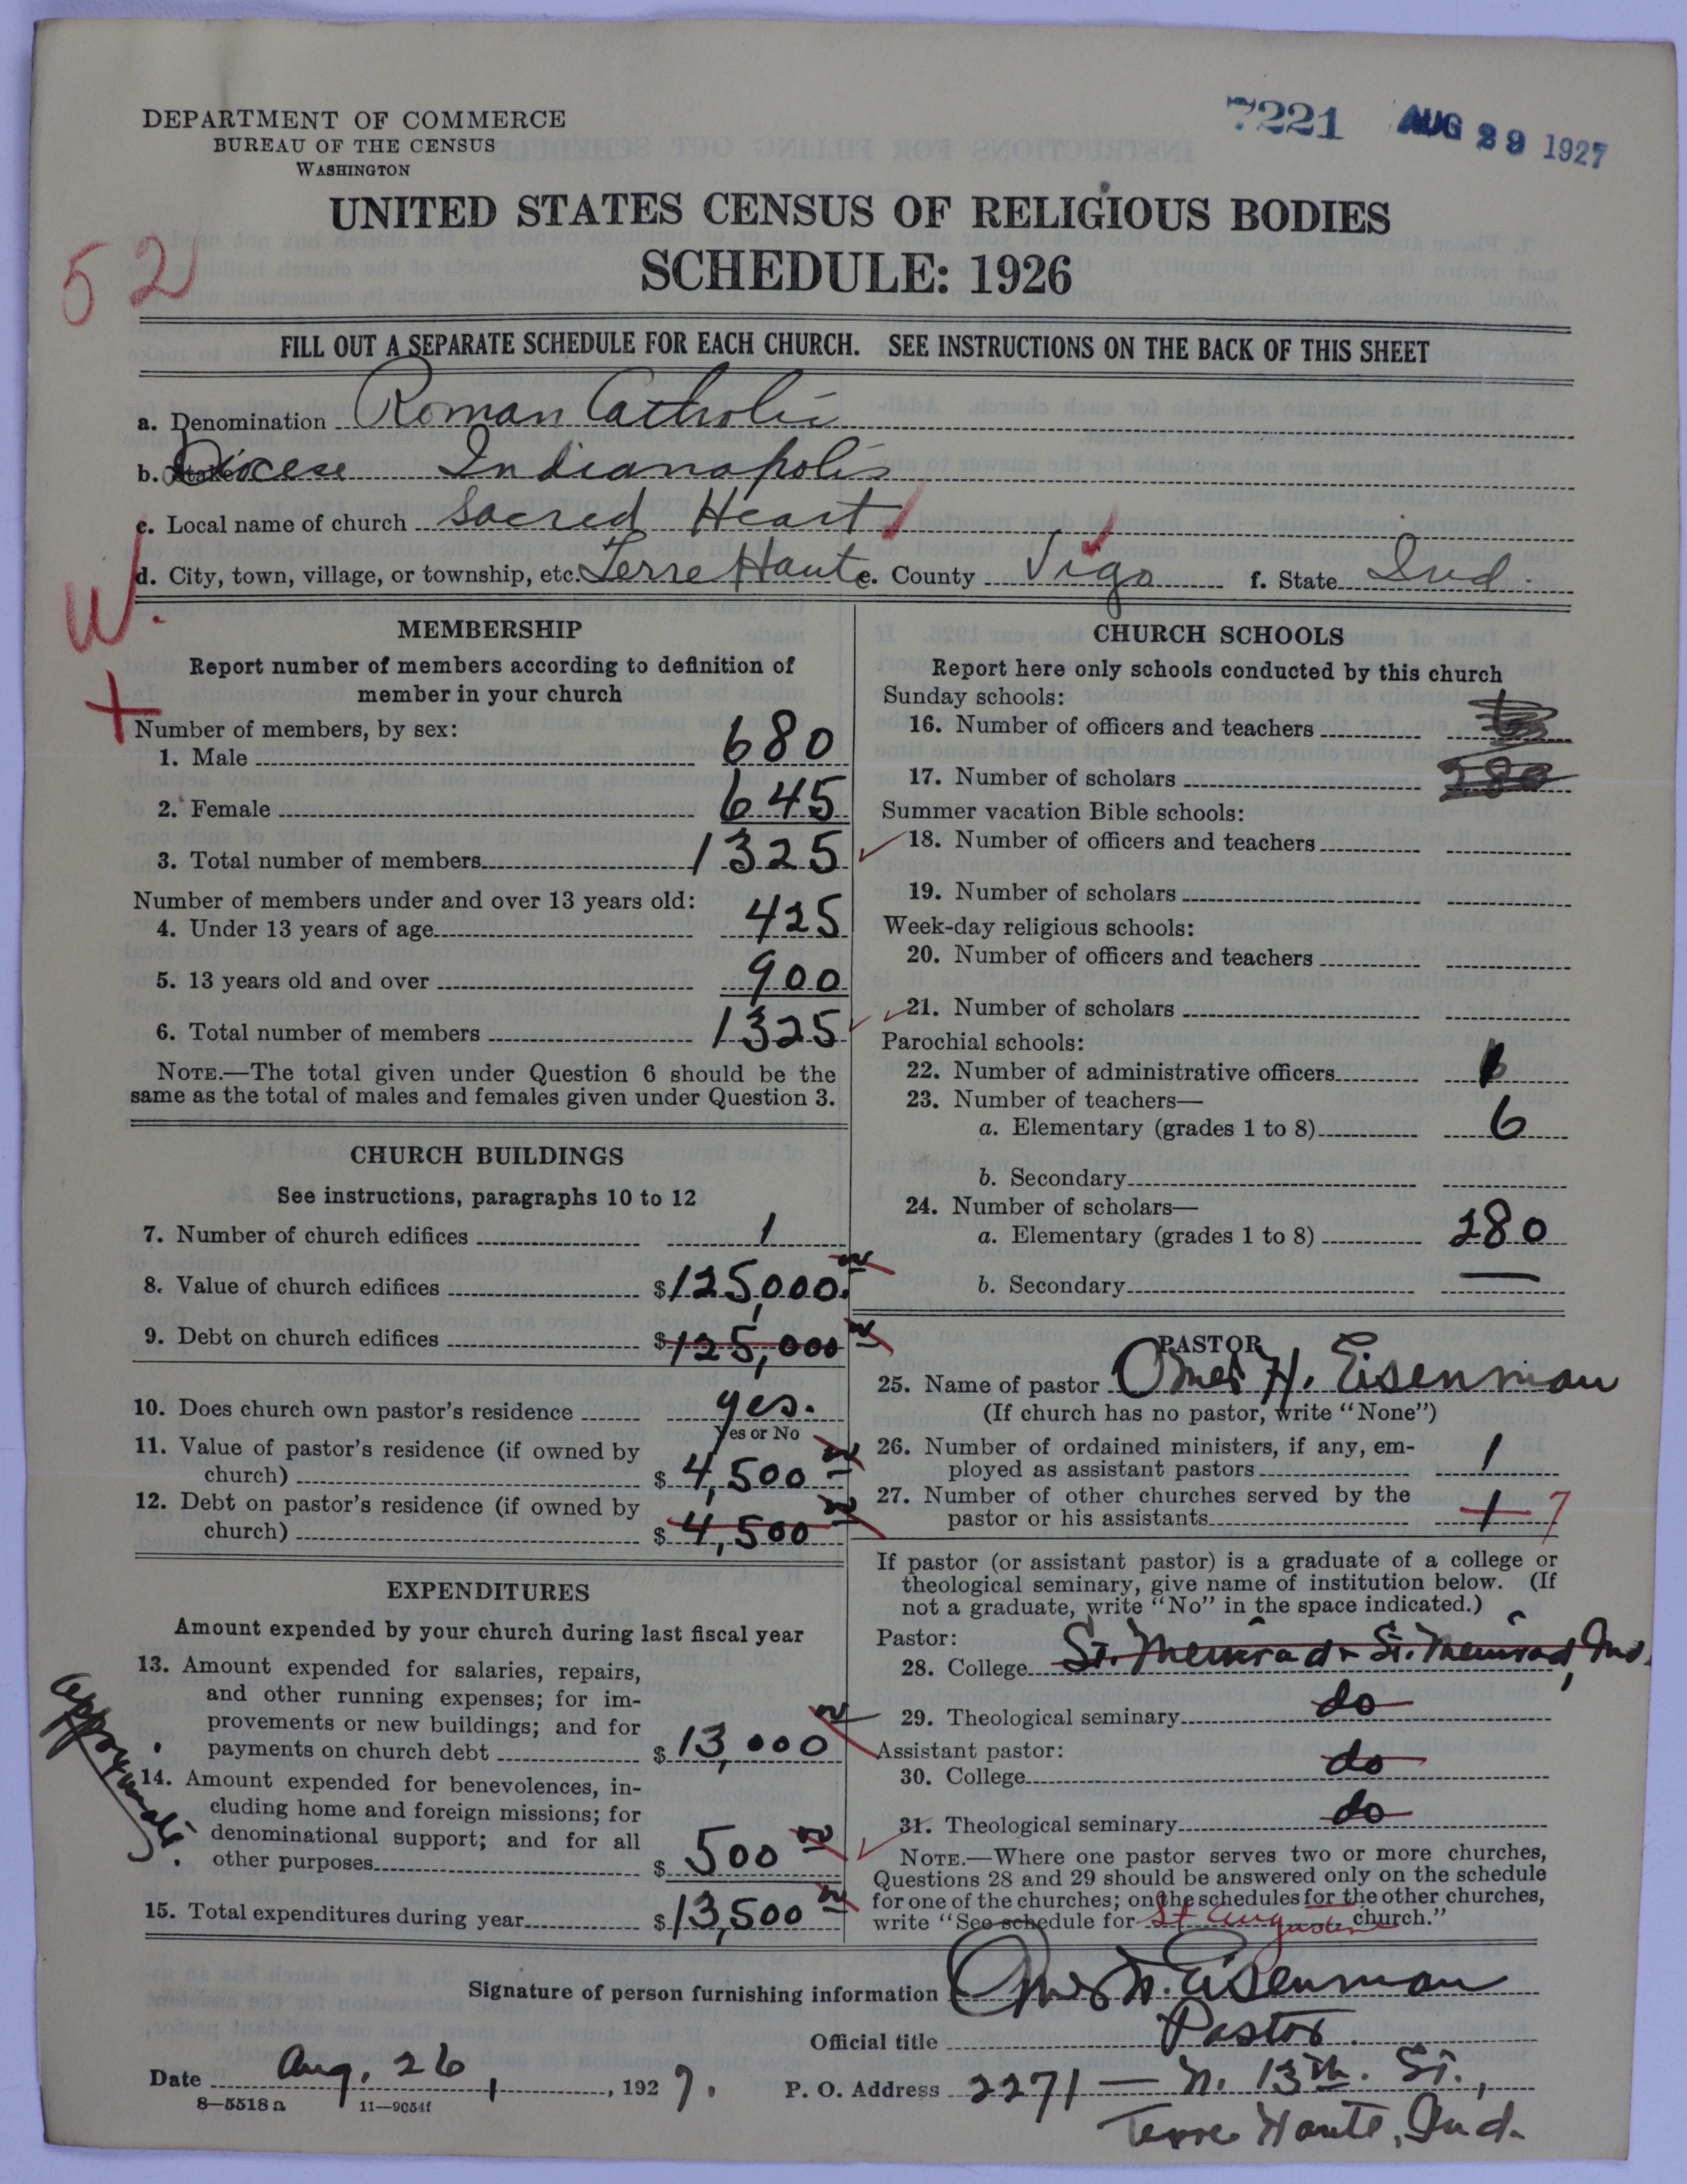 7221 AUG 29 1927
DEPARTMENT OF COMMERCE
BUREAU OF THE CENSUS
WASHINGTON
UNITED STATES CENSUS OF RELIGIOUS BODIES
SCHEDULE: 1926
52
FILL OUT A SEPARATE SCHEDULE FOR EACH CHURCH. SEE INSTRUCTIONS ON THE BACK OF THIS SHEET
a. Denomination Roman Catholic
b. Diocese Indianapolis
c. Local name of church Sacred Heart
d. City, town, village, or township, etc. Terre Haute e. County Vigo f. State Ind.
W.
MEMBERSHIP
Report number of members according to definition of
member in your church
Number of members, by sex:
1. Male 680
2. Female 645
3. Total number of members 1325
Number of members under and over 13 years old:
4. Under 13 years of age 425
5. 13 years old and over 900
6. Total number of members 1325
NOTE.—The total given under Question 6 should be the
same as the total of males and females given under Question 3.
CHURCH BUILDINGS
See instructions, paragraphs 10 to 12
7. Number of church edifices 1
8. Value of church edifices $125,000.
9. Debt on church edifices $125,000
10. Does church own pastor's residence yes.
Yes or No
11. Value of pastor's residence (if owned by
church) $4,500
12. Debt on pastor's residence (if owned by
church) $4,500
EXPENDITURES
Amount expended by your church during last fiscal year
13. Amount expended for salaries, repairs,
and other running expenses; for im-
provements or new buildings; and for
payments on church debt $13,000
14. Amount expended for benevolences, in-
cluding home and foreign missions; for
denominational support; and for all
other purposes $500
15. Total expenditures during year $13,500
CHURCH SCHOOLS
Report here only schools conducted by this church
Sunday schools:
16. Number of officers and teachers
17. Number of scholars 280
Summer vacation Bible schools:
18. Number of officers and teachers
19. Number of scholars
Week-day religious schools:
20. Number of officers and teachers
21. Number of scholars
Parochial schools:
22. Number of administrative officers
23. Number of teachers—
a. Elementary (grades 1 to 8) 6
b. Secondary
24. Number of scholars—
a. Elementary (grades 1 to 8) 280
b. Secondary —
PASTOR
25. Name of pastor Omer H. Eisenman
(If church has no pastor, write "None")
26. Number of ordained ministers, if any, em-
ployed as assistant pastors 1
27. Number of other churches served by the
pastor or his assistants 1 7
If pastor (or assistant pastor) is a graduate of a college or
theological seminary, give name of institution below. (If
not a graduate, write "No" in the space indicated.)
Pastor:
28. College St. Meinrad - St. Meinrad, Ind.
29. Theological seminary do
Assistant pastor:
30. College do
31. Theological seminary do
NOTE.—Where one pastor serves two or more churches,
Questions 28 and 29 should be answered only on the schedule
for one of the churches; on the schedules for the other churches,
write "See schedule for St Augustine church."
Signature of person furnishing information Omer H. Eisenman
Official title Pastor.
Date Aug. 26, 1927. P. O. Address 2271 — N. 13th. St.,
Terre Haute, Ind.
8—5518 a 11—9054f